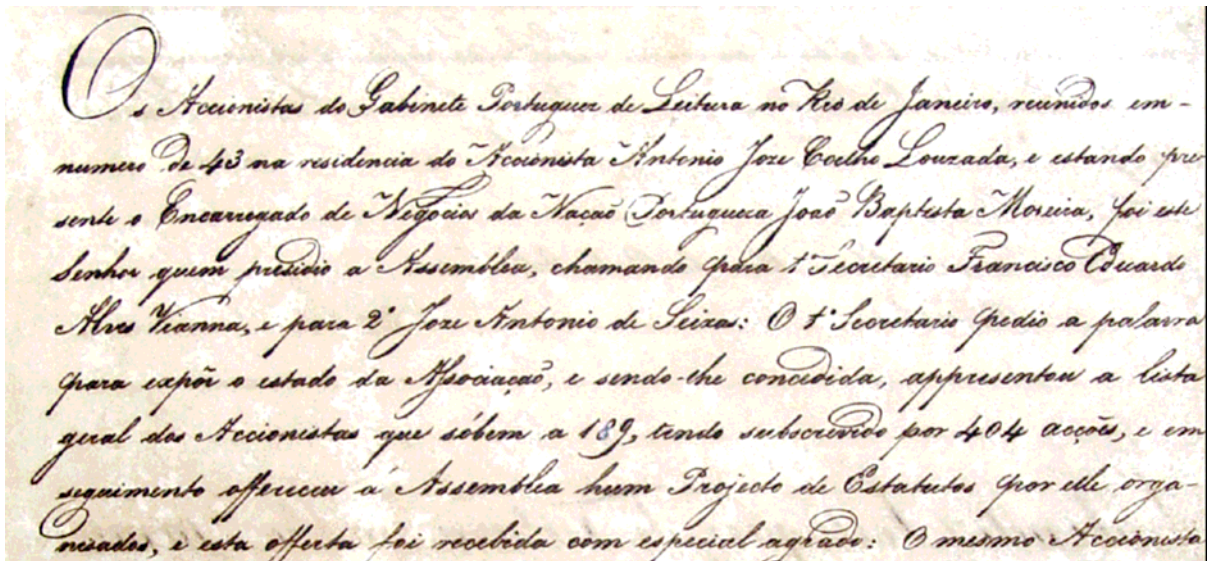 Os Accionistas do Gabinete Portuguez de Leitura no Rio de Janeiro, reunidos em-
numero de 43 na residencia do Accionista Antonio Joze Coelho Louzada, e estando pre-
sente o Encarregado de Negocios da Nação Portugueza João Baptista Moreira, foi este
Senhor quem presidio a Assemblea, chamando para 1º Secretario Francisco Eduardo
Alves Vianna, e para 2º Joze Antonio de Seixas: O 1º Secretario pedio a palavra
para expôr o estado da Associação, e sendo-lhe concedida, appresentou a lista
geral dos Accionistas que sóbem a 189, tendo subscrevido por 404 acções, e em
seguimento offereceu á Assemblea hum Projecto de Estatutos por elle orga-
nisados, e esta offerta foi recebida com especial agrado: O mesmo Accionista